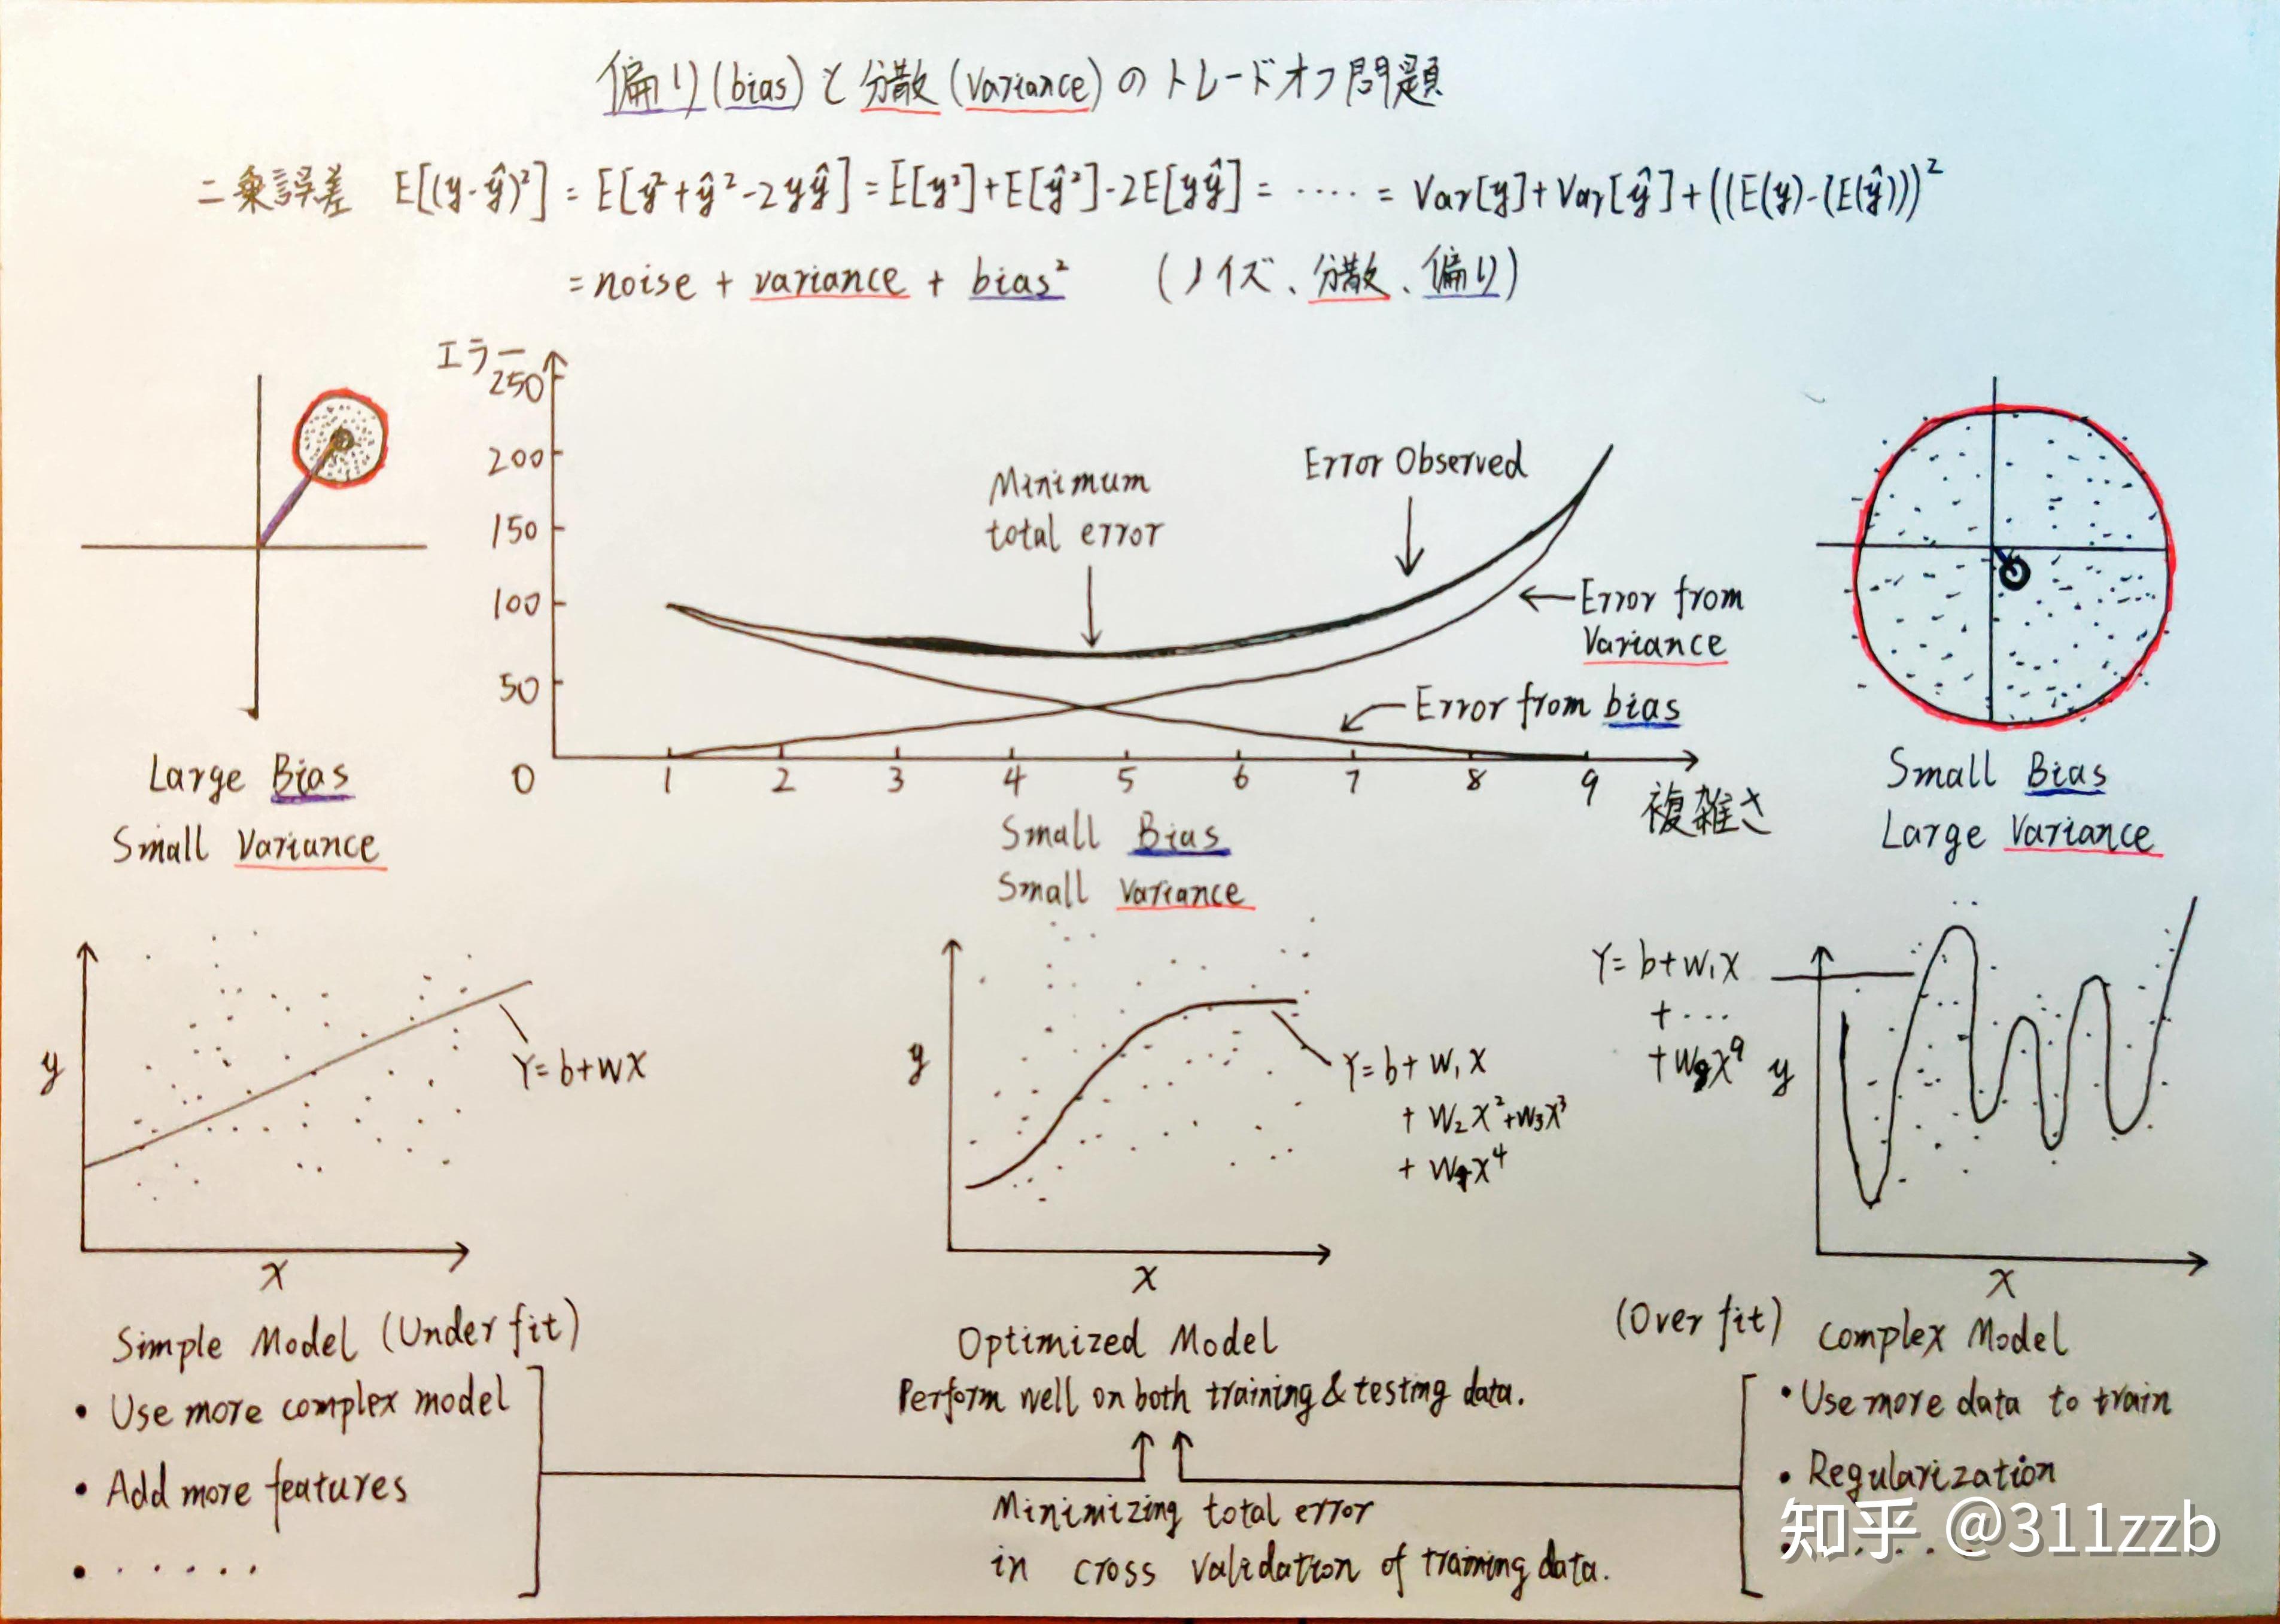 偏り(bias)と分散(variance)のトレードオフ問題
二乗誤差 E[(y-ŷ)²] = E[y²+ŷ²-2yŷ] = E[y²]+E[ŷ²]-2E[yŷ] = ····· = Var[y]+Var[ŷ]+((E(y)-(E(ŷ)))²
=noise + variance + bias² (ノイズ、分散、偏り)
エラー
250
200
150
100
50
0
1 2 3 4 5 6 7 8 9
複雑さ
Minimum
total error
Error Observed
Error from
Variance
Error from bias
Large Bias
Small Variance
Small Bias
Small Variance
Small Bias
Large Variance
y
Y=b+wX
x
y
Y=b+W₁X
+W₂X²+W₃X³
+W₄X⁴
x
Y=b+W₁X
+···
+W₉X⁹
y
x
Simple Model (Under fit)
• Use more complex model
• Add more features
• ······
Optimized Model
Perform well on both training & testing data.
Minimizing total error
in cross validation of training data.
(Over fit) Complex Model
• Use more data to train
• Regularization
知乎 @311zzb